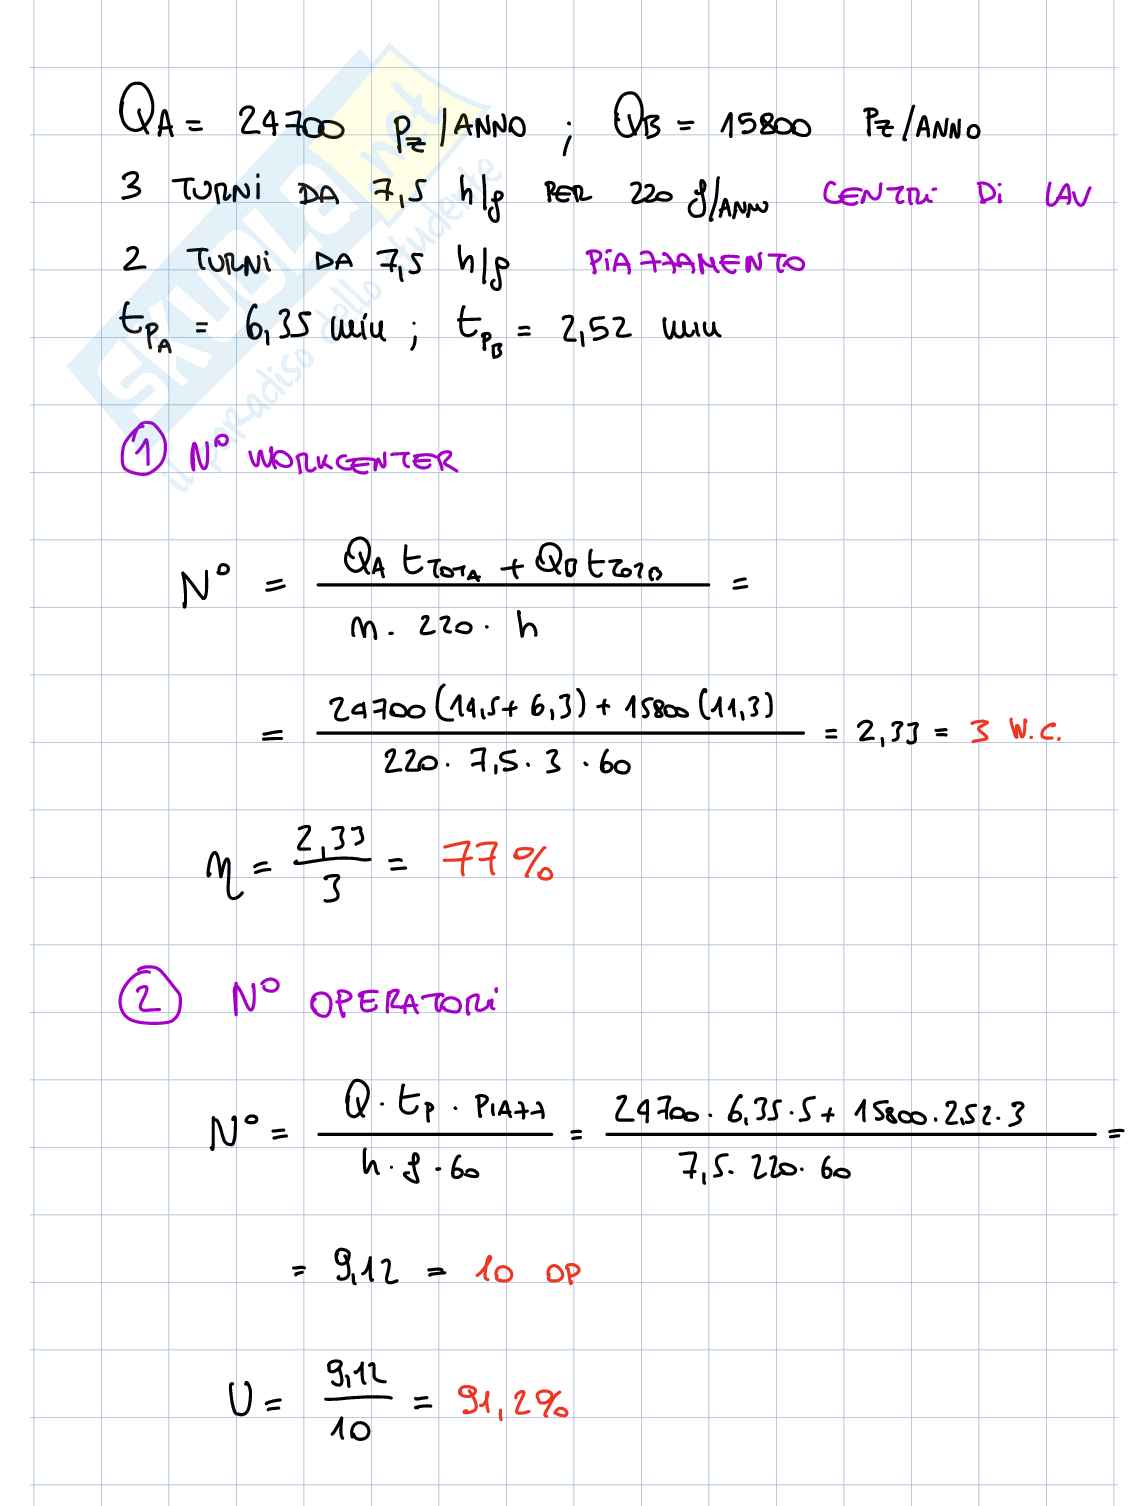 QA = 24700 Pz/ANNO ; QB = 15800 Pz/ANNO
3 TURNI DA 7,5 h/g PER 220 g/ANNO CENTRI DI LAV
2 TURNI DA 7,5 h/g PIAZZAMENTO
tPA = 6,35 min ; tPB = 2,52 min
SKUOLA.net
il paradiso dello studente
1 N° WORKCENTER
N° = QA tTOTA + QB tTOTB / n · 220 · h =
= 24700 (14,5 + 6,3) + 15800 (11,3) / 220 · 7,5 · 3 · 60 = 2,33 = 3 W.C.
η = 2,33 / 3 = 77%
2 N° OPERATORI
N° = Q · tP · PIAZZ / h · g · 60 = 24700 · 6,35 · 5 + 15800 · 2,52 · 3 / 7,5 · 220 · 60 =
= 9,12 = 10 OP
U = 9,12 / 10 = 91,2%